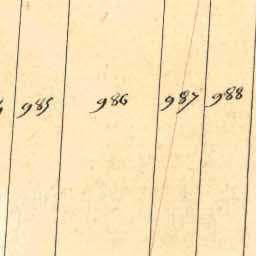 985 986 987 988